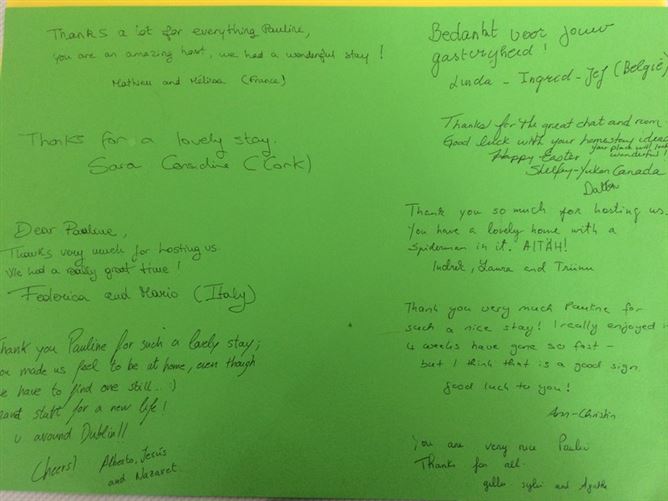 Thanks a lot for everything Pauline,
you are an amazing host, we had a wonderful stay !
Mathieu and Mélissa (France)
Thanks for a lovely stay.
Sara Considine (Cork)
Dear Pauline,
Thanks very much for hosting us.
We had a really great time !
Federica and Mario (Italy)
Thank you Pauline for such a lovely stay;
you made us feel to be at home, even though
we have to find one still.. :)
start for a new life !
u around Dublin!!
Cheers!
Alberto, Jesús
and Nazaret
Bedankt voor jouw
gastvrijheid !
Linda - Ingrid - Jef (België)
Thanks for the great chat and room
Good luck with your homestay ideas
your place will look
wonderful !
Happy Easter
Shelley - Yukon Canada
Dalton
Thank you so much for hosting us.
You have a lovely home with a
Spiderman in it. AITÄH!
Indrek, Laura and Triinu
Thank you very much Pauline for
such a nice stay! I really enjoyed it
4 weeks have gone so fast -
but I think that is a good sign.
Good luck to you!
Ann-Christin
You are very nice Pauline
Thanks for all.
gilles sylvie and Agathe